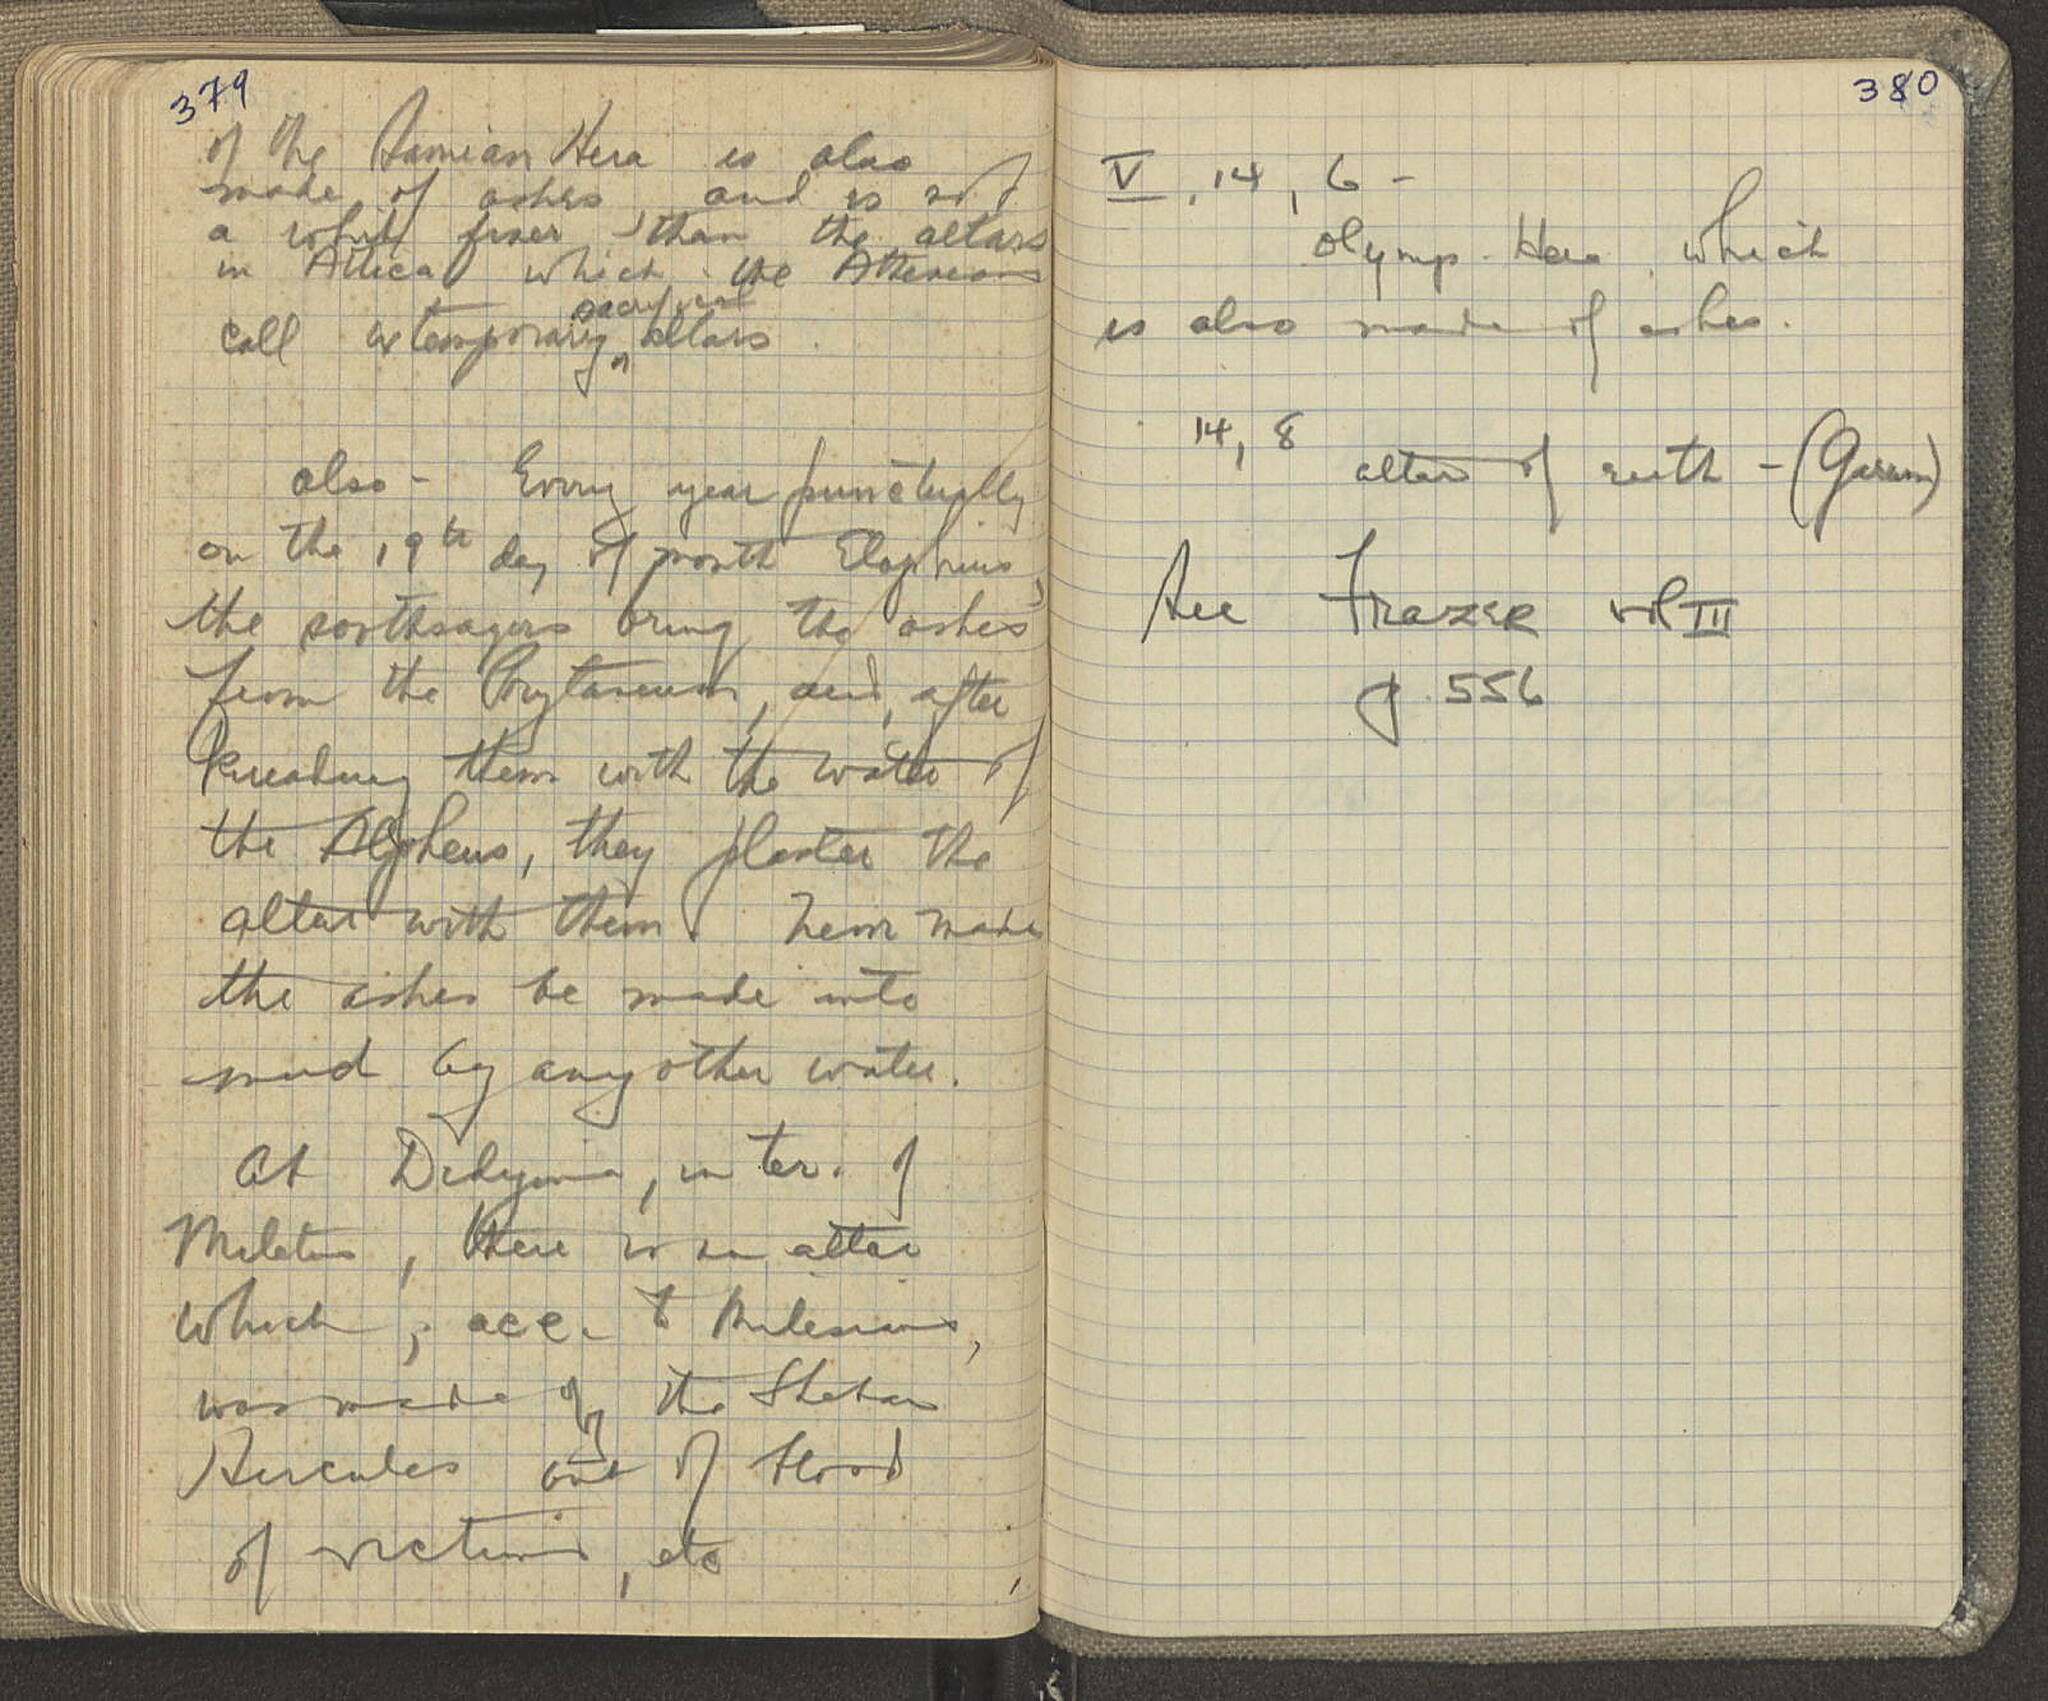 379
of the Samian Hera is also
made of ashes and is not
a whit finer than the altars
in Attica which the Athenians
sacrificial
call extemporary altars.
also - Every year punctually
on the 19th day of month Elaphius,
the soothsayers bring the ashes
from the Prytaneum, and, after
kneading them with the water of
the Alpheus, they plaster the
altar with them. never
the ashes be made into
mud by any other water.
At Didyma, in ter. of
Miletus, there is an altar
which, acc. to Milesians,
was made by the Theban
Hercules out of blood
of victims, etc
380
V, 14, 6 -
Olymp. Hera which
is also made of ashes.
14, 8
altar of earth - (
See Frazer vol III
p. 556